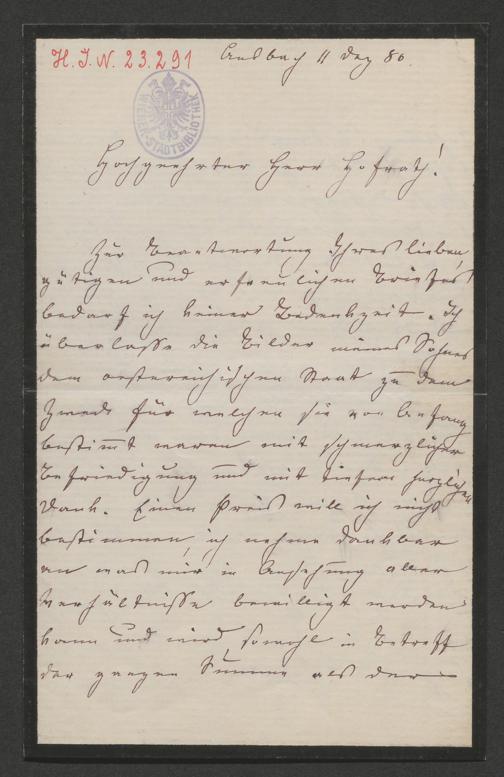 H. I. N. 23.291
Ansbach 11 Dez 80.
WIENER STADTBIBLIOTHEK
Hochgeehrter Herr Hofrath!
Zur Beantwortung Ihres lieben,
gütigen und erfreulichen Briefes
bedarf ich keiner Bedenkzeit. Ich
überlasse die Bilder meines Sohnes
dem oesterreichischen Staat zu dem
Zweck für welchen sie von Anfang
bestimt waren mit schmerzlicher
Befriedigung und mit tiefem herzlichen
Dank. Einen Preis will ich nicht
bestimmen, ich nehme dankbar
an was mir in Ansehung aller
Verhältnisse bewilligt werden
kann und wird, sowohl in Betreff
der ganzen Summe als der